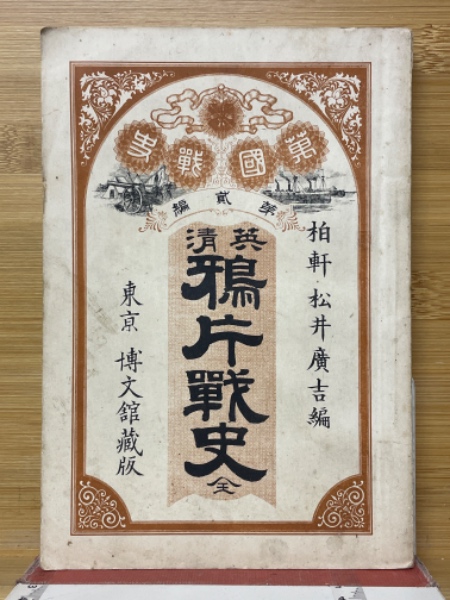 萬國戰史
第貳編
柏軒 松井廣吉編
英清
鴉片戰史 全
東京 博文館藏版